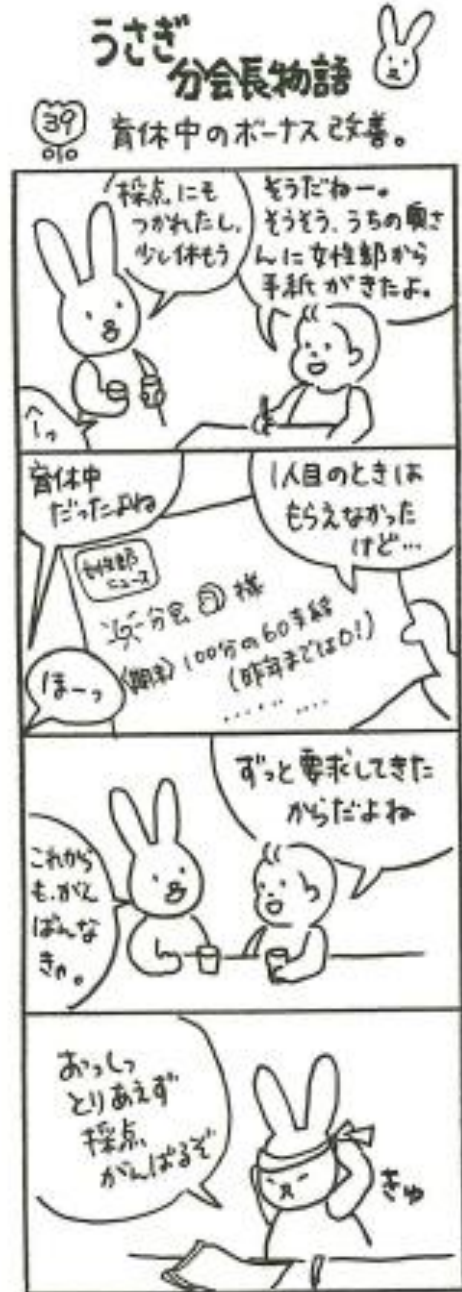 うさぎ
分会長物語
39
育休中のボーナス改善。
採点にも
つかれたし、
少し休もう
そうだねー。
そうそう、うちの奥さ
んに女性部から
手紙がきたよ。
へーっ
育休中
だったよね
1人目のときは
もらえなかった
けど…
女性部
ニュース
分会 様
(期末) 100分の60支給
(昨年までは0!)
ほーっ
ずっと要求してきた
からだよね
これから
も、がん
ばんな
きゃ。
おっしっ
とりあえず
採点、
がんばるぞ
きゅ